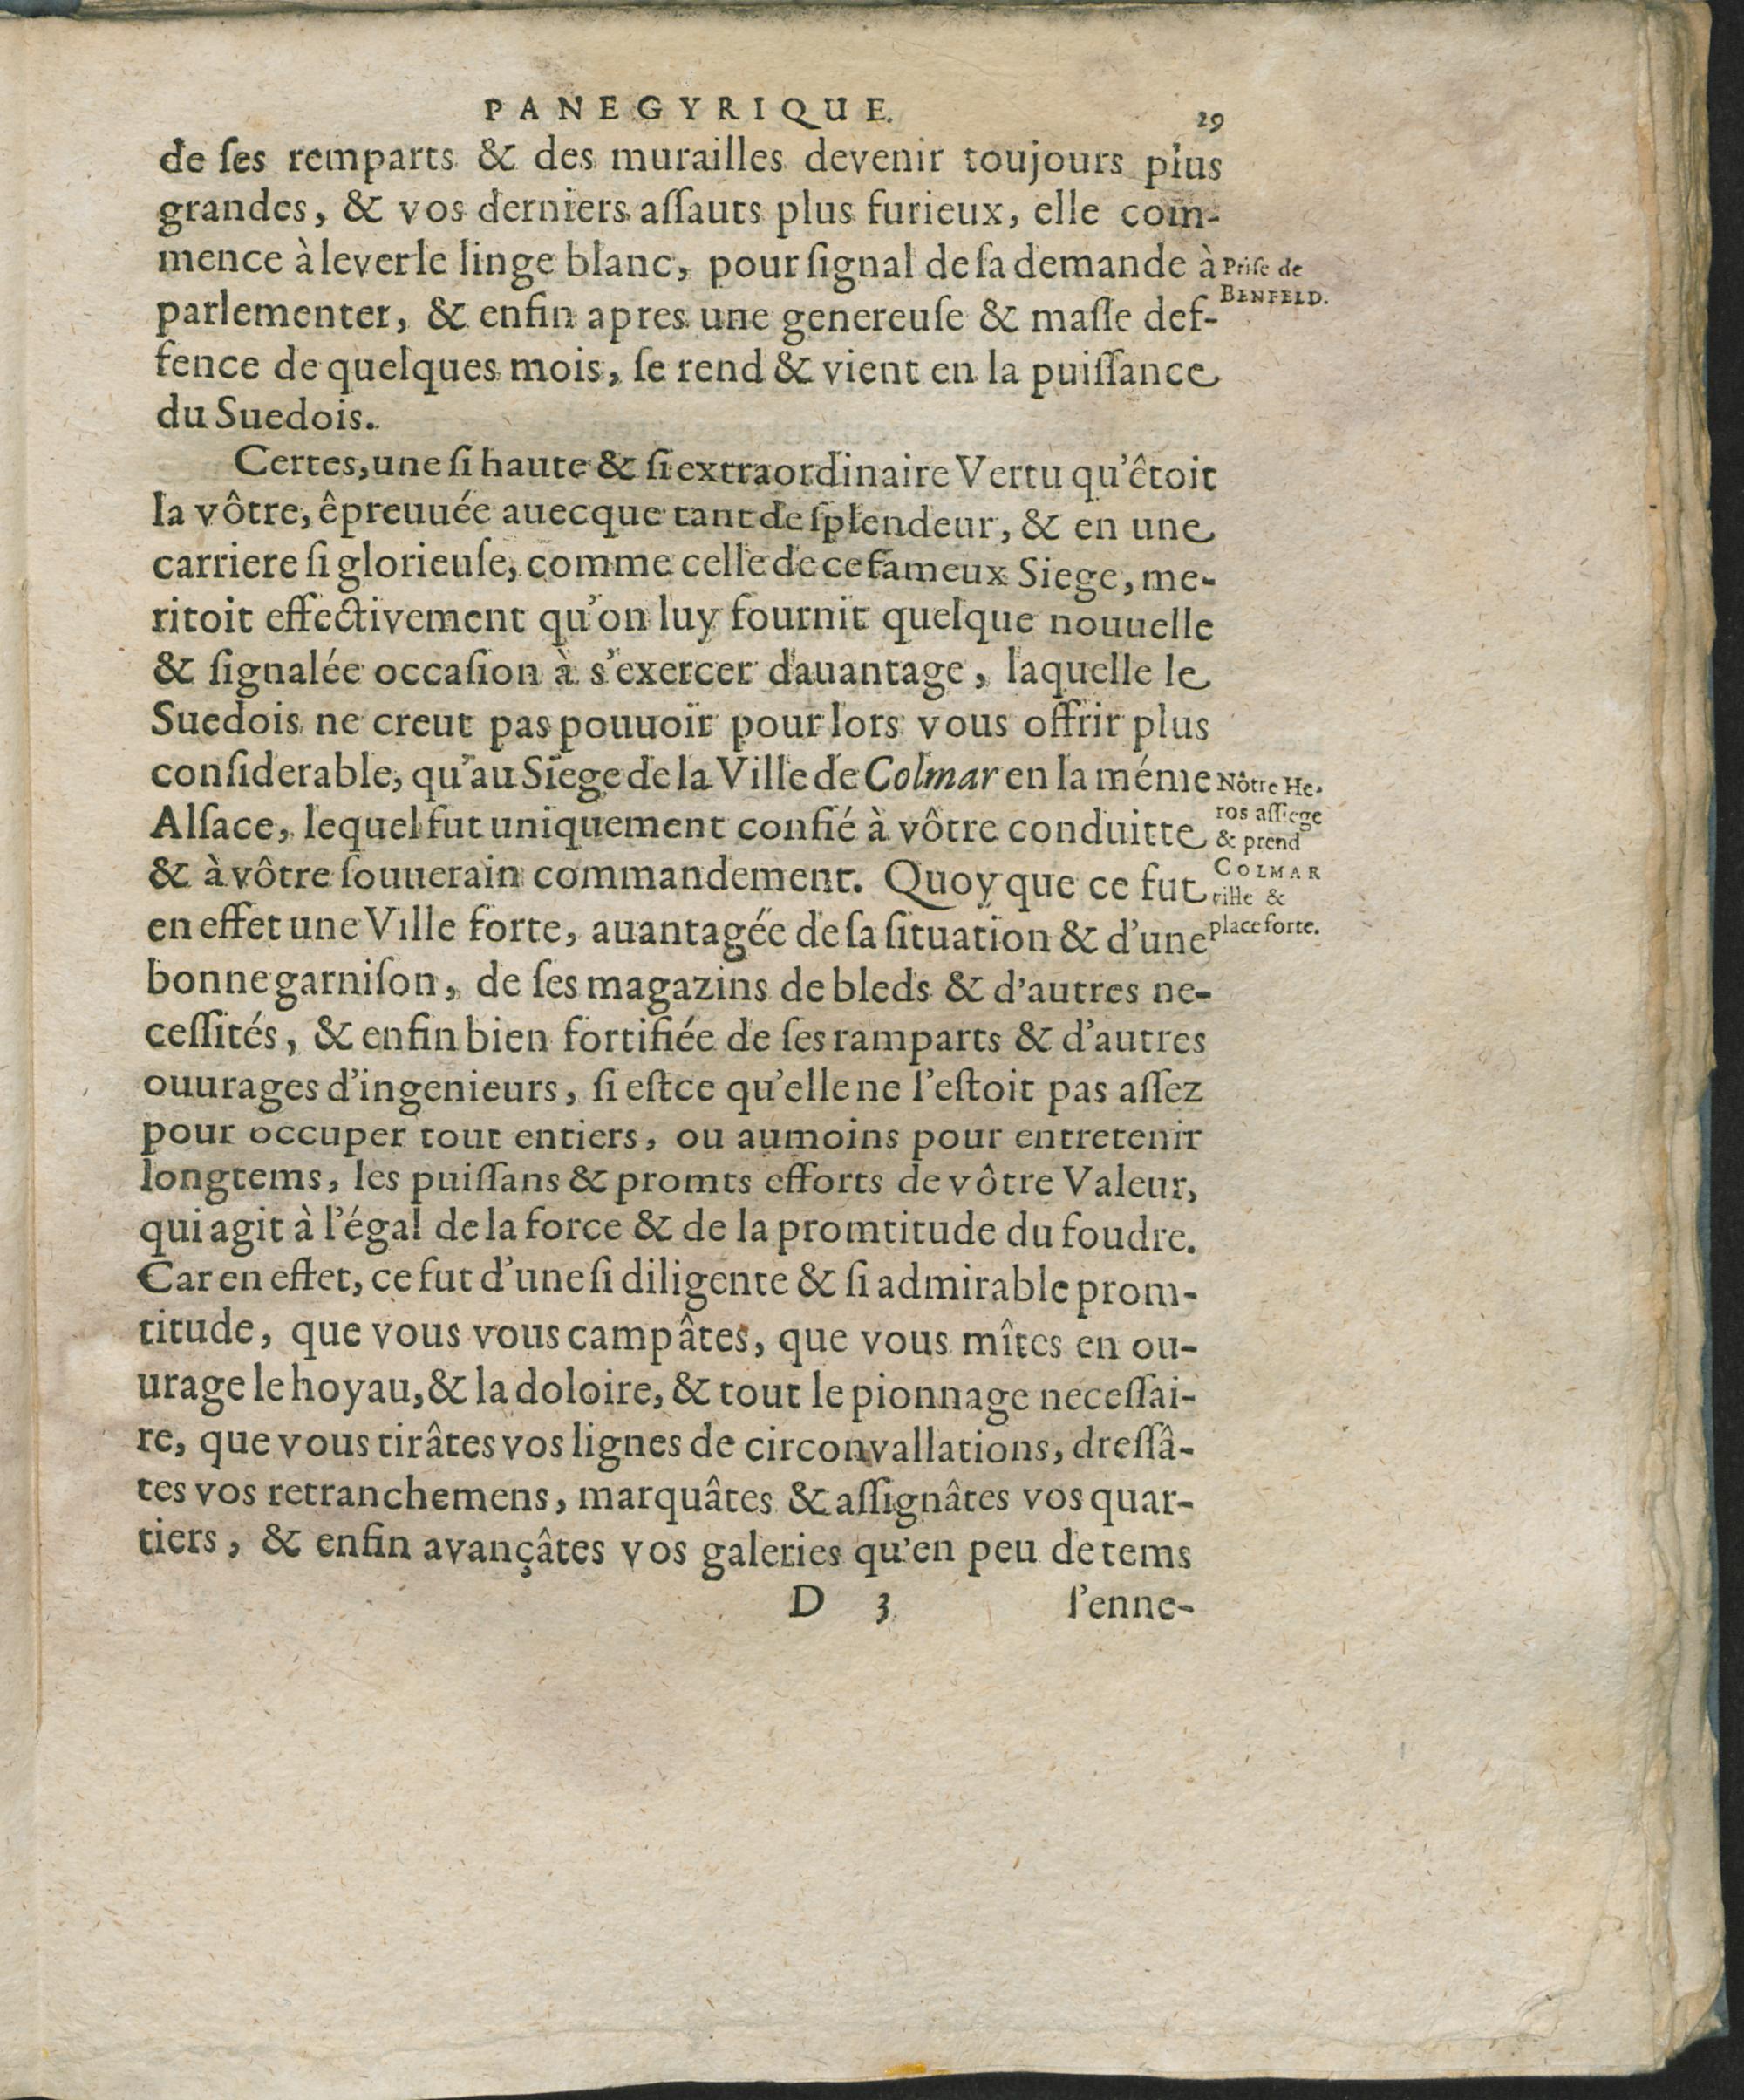 PANEGYRIQUE. 29
de ſes remparts & des murailles devenir toujours plus
grandes, & vos derniers aſſauts plus furieux, elle com-
mence à lever le linge blanc, pour ſignal de ſa demande à
parlementer, & enfin apres une genereuſe & maſle def-
fence de quelques mois, ſe rend & vient en la puiſſance
du Suedois.
Priſe de
BENFELD.
Certes, une ſi haute & ſi extraordinaire Vertu qu'êtoit
la vôtre, êpreuuée auecque tant de ſplendeur, & en une
carriere ſi glorieuſe, comme celle de ce fameux Siege, me-
ritoit effectivement qu'on luy fournit quelque nouuelle
& ſignalée occaſion à s'exercer dauantage, laquelle le
Suedois ne creut pas pouuoir pour lors vous offrir plus
conſiderable, qu'au Siege de la Ville de Colmar en la méme
Alſace, lequel fut uniquement confié à vôtre conduitte
& à vôtre ſouuerain commandement. Quoy que ce fut
en effet une Ville forte, auantagée de ſa ſituation & d'une
bonne garniſon, de ſes magazins de bleds & d'autres ne-
ceſſités, & enfin bien fortifiée de ſes ramparts & d'autres
ouurages d'ingenieurs, ſi eſtce qu'elle ne l'eſtoit pas aſſez
pour occuper tout entiers, ou aumoins pour entretenir
longtems, les puiſſans & promts efforts de vôtre Valeur,
qui agit à l'égal de la force & de la promtitude du foudre.
Car en effet, ce fut d'une ſi diligente & ſi admirable prom-
titude, que vous vous campâtes, que vous mîtes en ou-
urage le hoyau, & la doloire, & tout le pionnage neceſſai-
re, que vous tirâtes vos lignes de circonvallations, dreſſâ-
tes vos retranchemens, marquâtes & aſſignâtes vos quar-
tiers, & enfin avançâtes vos galeries qu'en peu de tems
Nôtre He-
ros aſſiege
& prend
COLMAR
ville &
place forte.
D 3 l'enne-